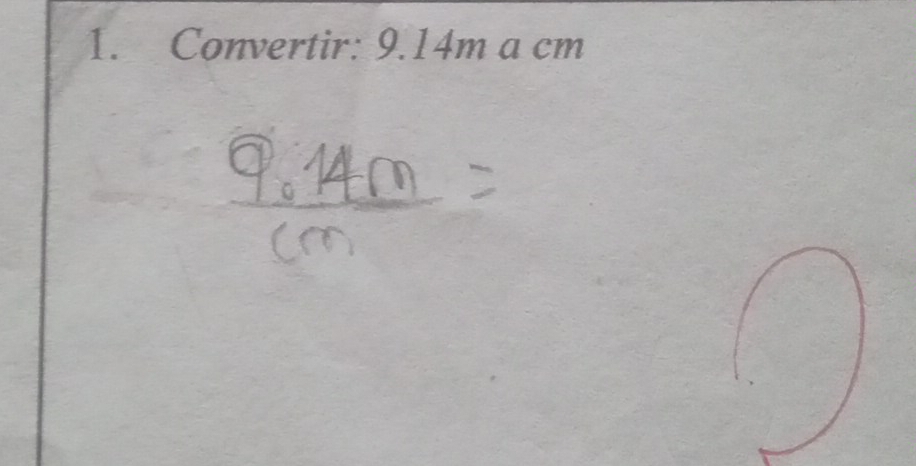 1. Convertir: 9.14m a cm
9.14m =
cm